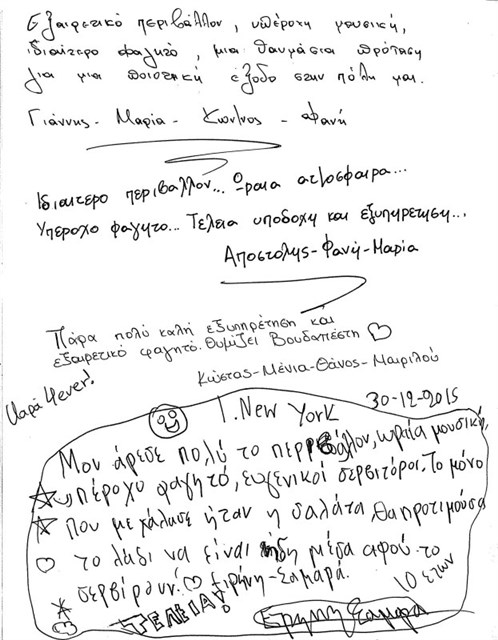 Εξαιρετικό περιβάλλον, υπέροχη μουσική,
ιδιαίτερο φαγητό, μια θαυμάσια πρόταση
για μια ποιοτική έξοδο στην πόλη μας.
Γιάννης - Μαρία - Κων/νος - Φανή
Ιδιαιτερο περιβαλλον... Ωραια ατμοσφαιρα...
Υπεροχο φαγητο... Τελεια υποδοχη και εξυπηρετηση...
Αποστολης-Φανή-Μαρία
Πάρα πολύ καλή εξυπηρέτηση και
εξαιρετικό φαγητό. Θυμίζει Βουδαπέστη ♡
Κώστας-Μένια-Θάνος-Μαιριλού
Χαρά 4ever!
30-12-2015
1. New York
Μου άρεσε πολύ το περιβάλλον, ωραία μουσική,
υπέροχο φαγητό, ευγενικοί σερβιτόροι. Το μόνο
που με χάλασε ήταν η σαλάτα, θα προτιμούσα
το λάδι να είναι ήδη μέσα αφού το
σερβίρουν! ♡ Ειρήνη-Σαμαρά.
10 ετών
ΤΕΛΕΙΑ!